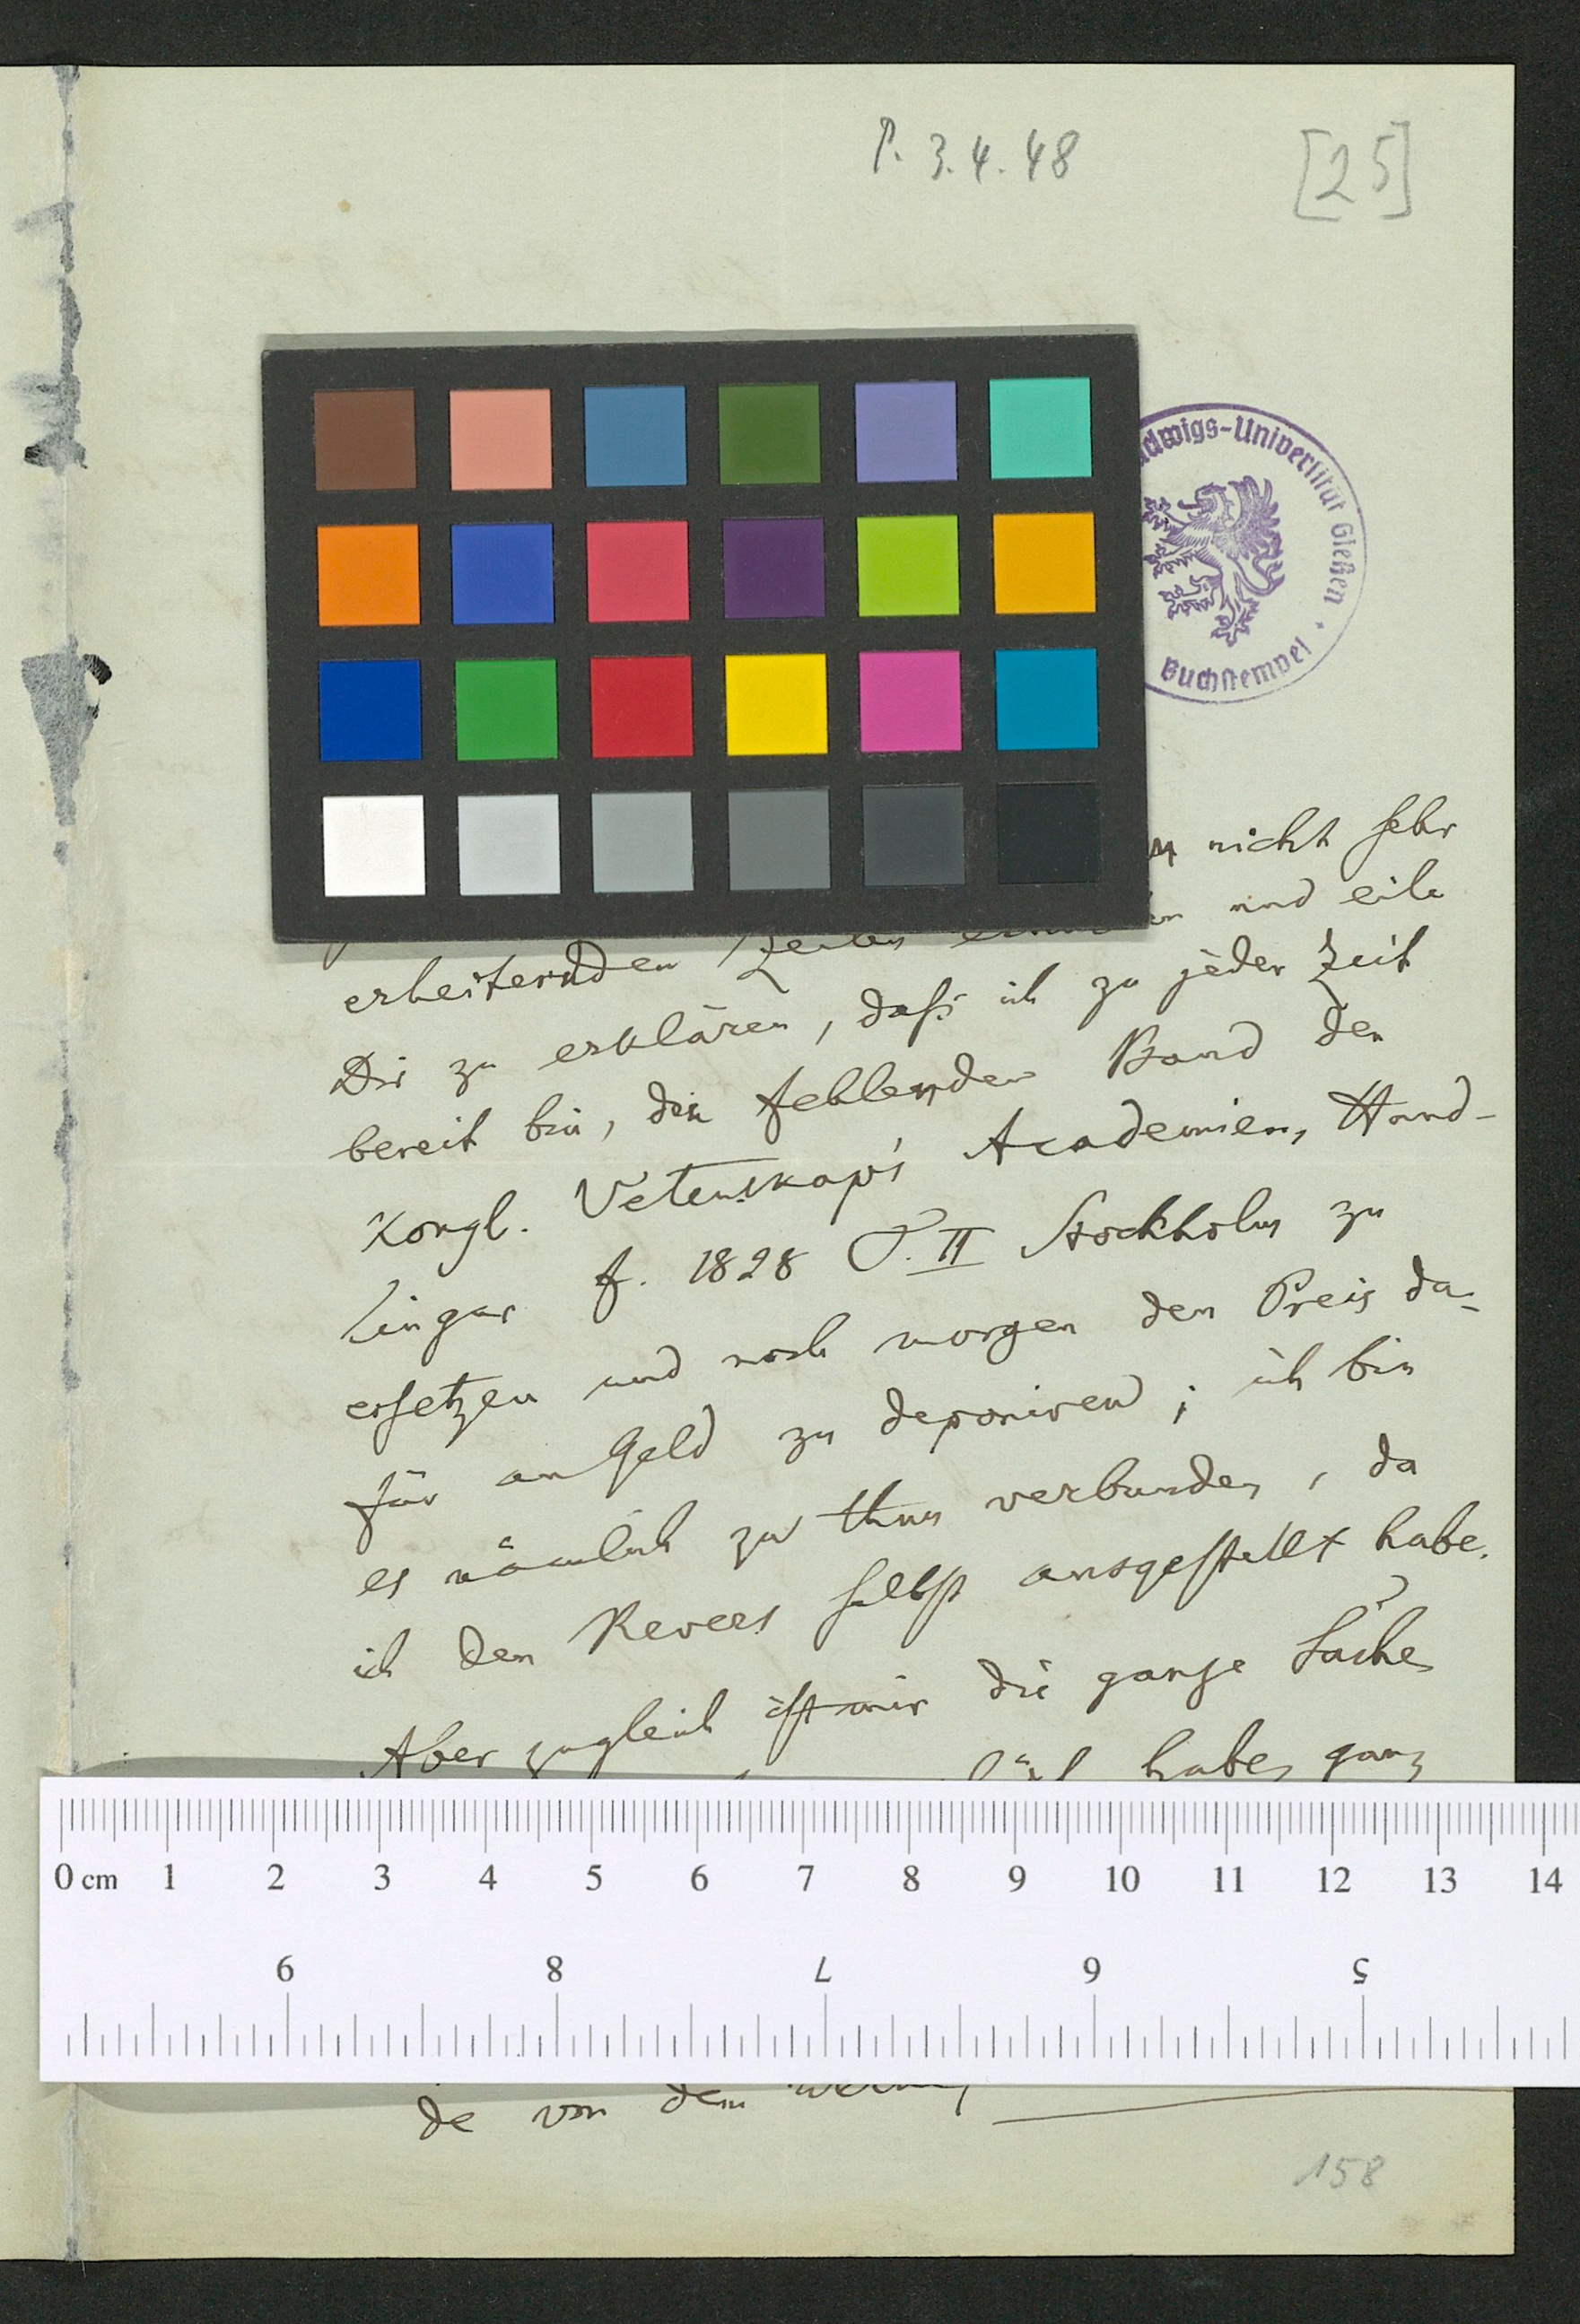 P. 3.4.48
[25]
dwigs-Universität Gießen
Buchstempel
nicht sehr
erheiternden Zeilen und eile
Dir zu erklären, daß ich zu jeder Zeit
bereit bin, den fehlenden Band der
Kongl. Vetenskaps Academiens Hand-
lingar f. 1828 P. II Stockholm zu
ersetzen und noch morgen den Preis da-
für an Geld zu deponiren; ich bin
es nämlich zu thun verbunden, da
ich den Revers selbst ausgestellt habe.
Aber zugleich ist mir die ganze Sache
habe, ganz
0 cm 1 2 3 4 5 6 7 8 9 10 11 12 13 14
9 8 7 6 5
de von dem
158